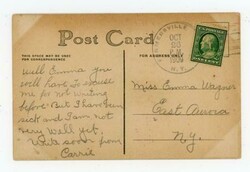 Post Card
THIS SPACE MAY BE USED
FOR CORRESPONDENCE
FOR ADDRESS ONLY
OCT
20
P M
N.Y.
Well Emma you
will have to excuse
me for not writing
before But I have been
sick and I am not
very Well yet.
Write soon from
Carrie
Miss Emma Wagner
East Aurora
N.Y.